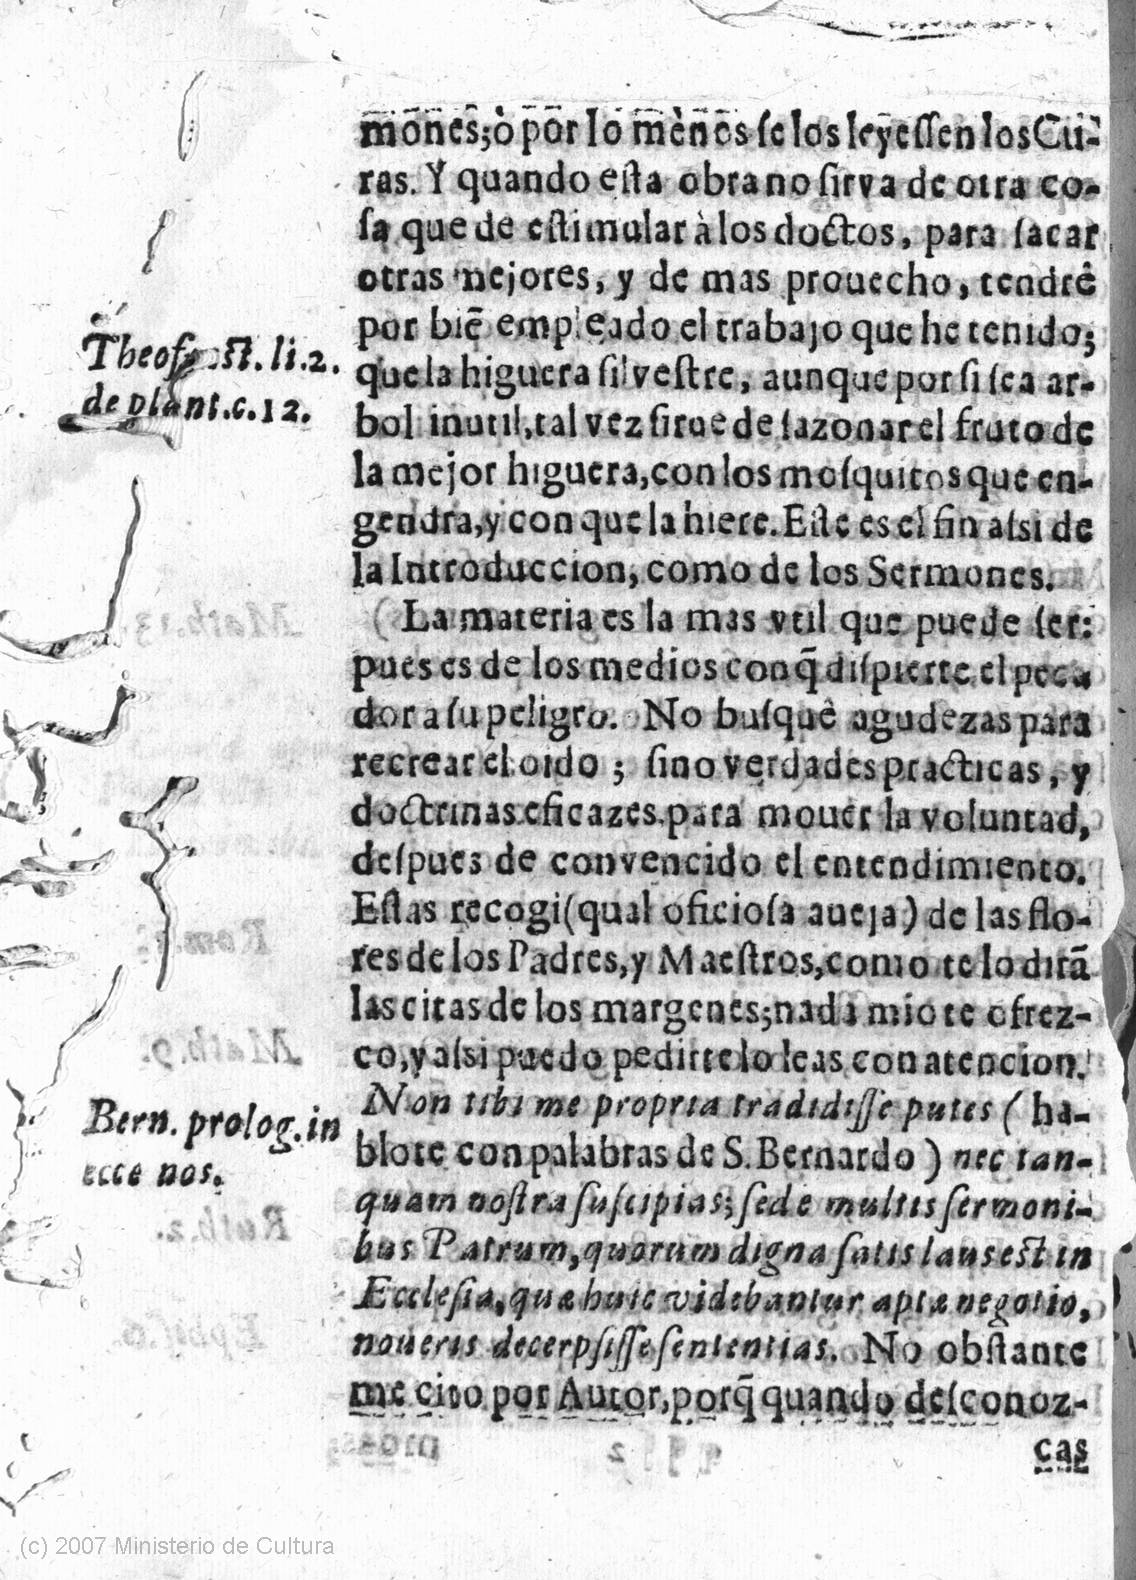 mones; ò por lo mènos se los leyessen los Cu-
ras. Y quando esta obra no sirva de otra co-
sa que de estimular à los doctos, para sacar
otras mejores, y de mas prouecho, tendrè
por biẽ empleado el trabajo que he tenido;
Theofrast. li. 2.
que la higuera silvestre, aunque por si sea ar-
de plant. c. 12.
bol inutil, tal vez sirue de sazonar el fruto de
la mejor higuera, con los mosquitos que en-
gendra, y con que la hiere. Este es el fin assi de
la Introduccion, como de los Sermones.
La materia es la mas vtil que puede ser:
pues es de los medios conq̃ dispierte el peca
dor a su peligro. No busquè agudezas para
recrear el oido; sino verdades practicas, y
doctrinas eficazes para mouer la voluntad,
despues de convencido el entendimiento.
Estas recogi (qual oficiosa aueja) de las flo-
res de los Padres, y Maestros, como te lo dirã
las citas de los margenes; nada mio te ofrez-
co, y assi puedo pedirte lo leas con atencion.
Non tibi me propria tradidisse putes (ha-
Bern. prolog. in
ecce nos.
blote con palabras de S. Bernardo) nec tan-
quam nostra suscipias; sed e multis sermoni-
bus Patrum, quorum digna satis laus est in
Ecclesia, quæ huic videbantur aptæ negotio,
noueris decerpsisse sententias. No obstante
me cito por Autor, porq̃ quando desconoz-
cas
(c) 2007 Ministerio de Cultura